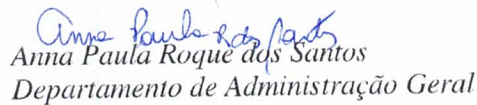 Anna Paula R dos Santos
Anna Paula Roque dos Santos
Departamento de Administração Geral